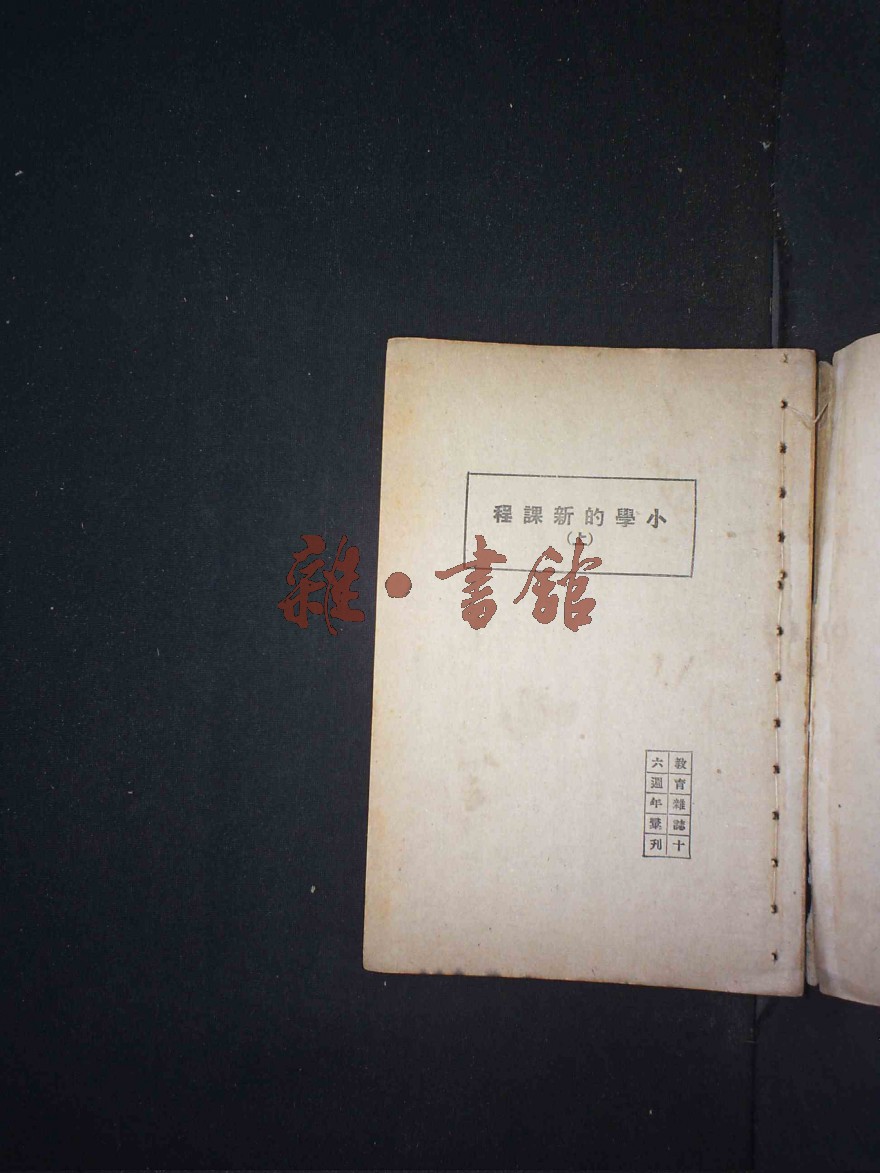 小學的新課程
(上)
雜·書館
教育雜誌十
六週年彙刊